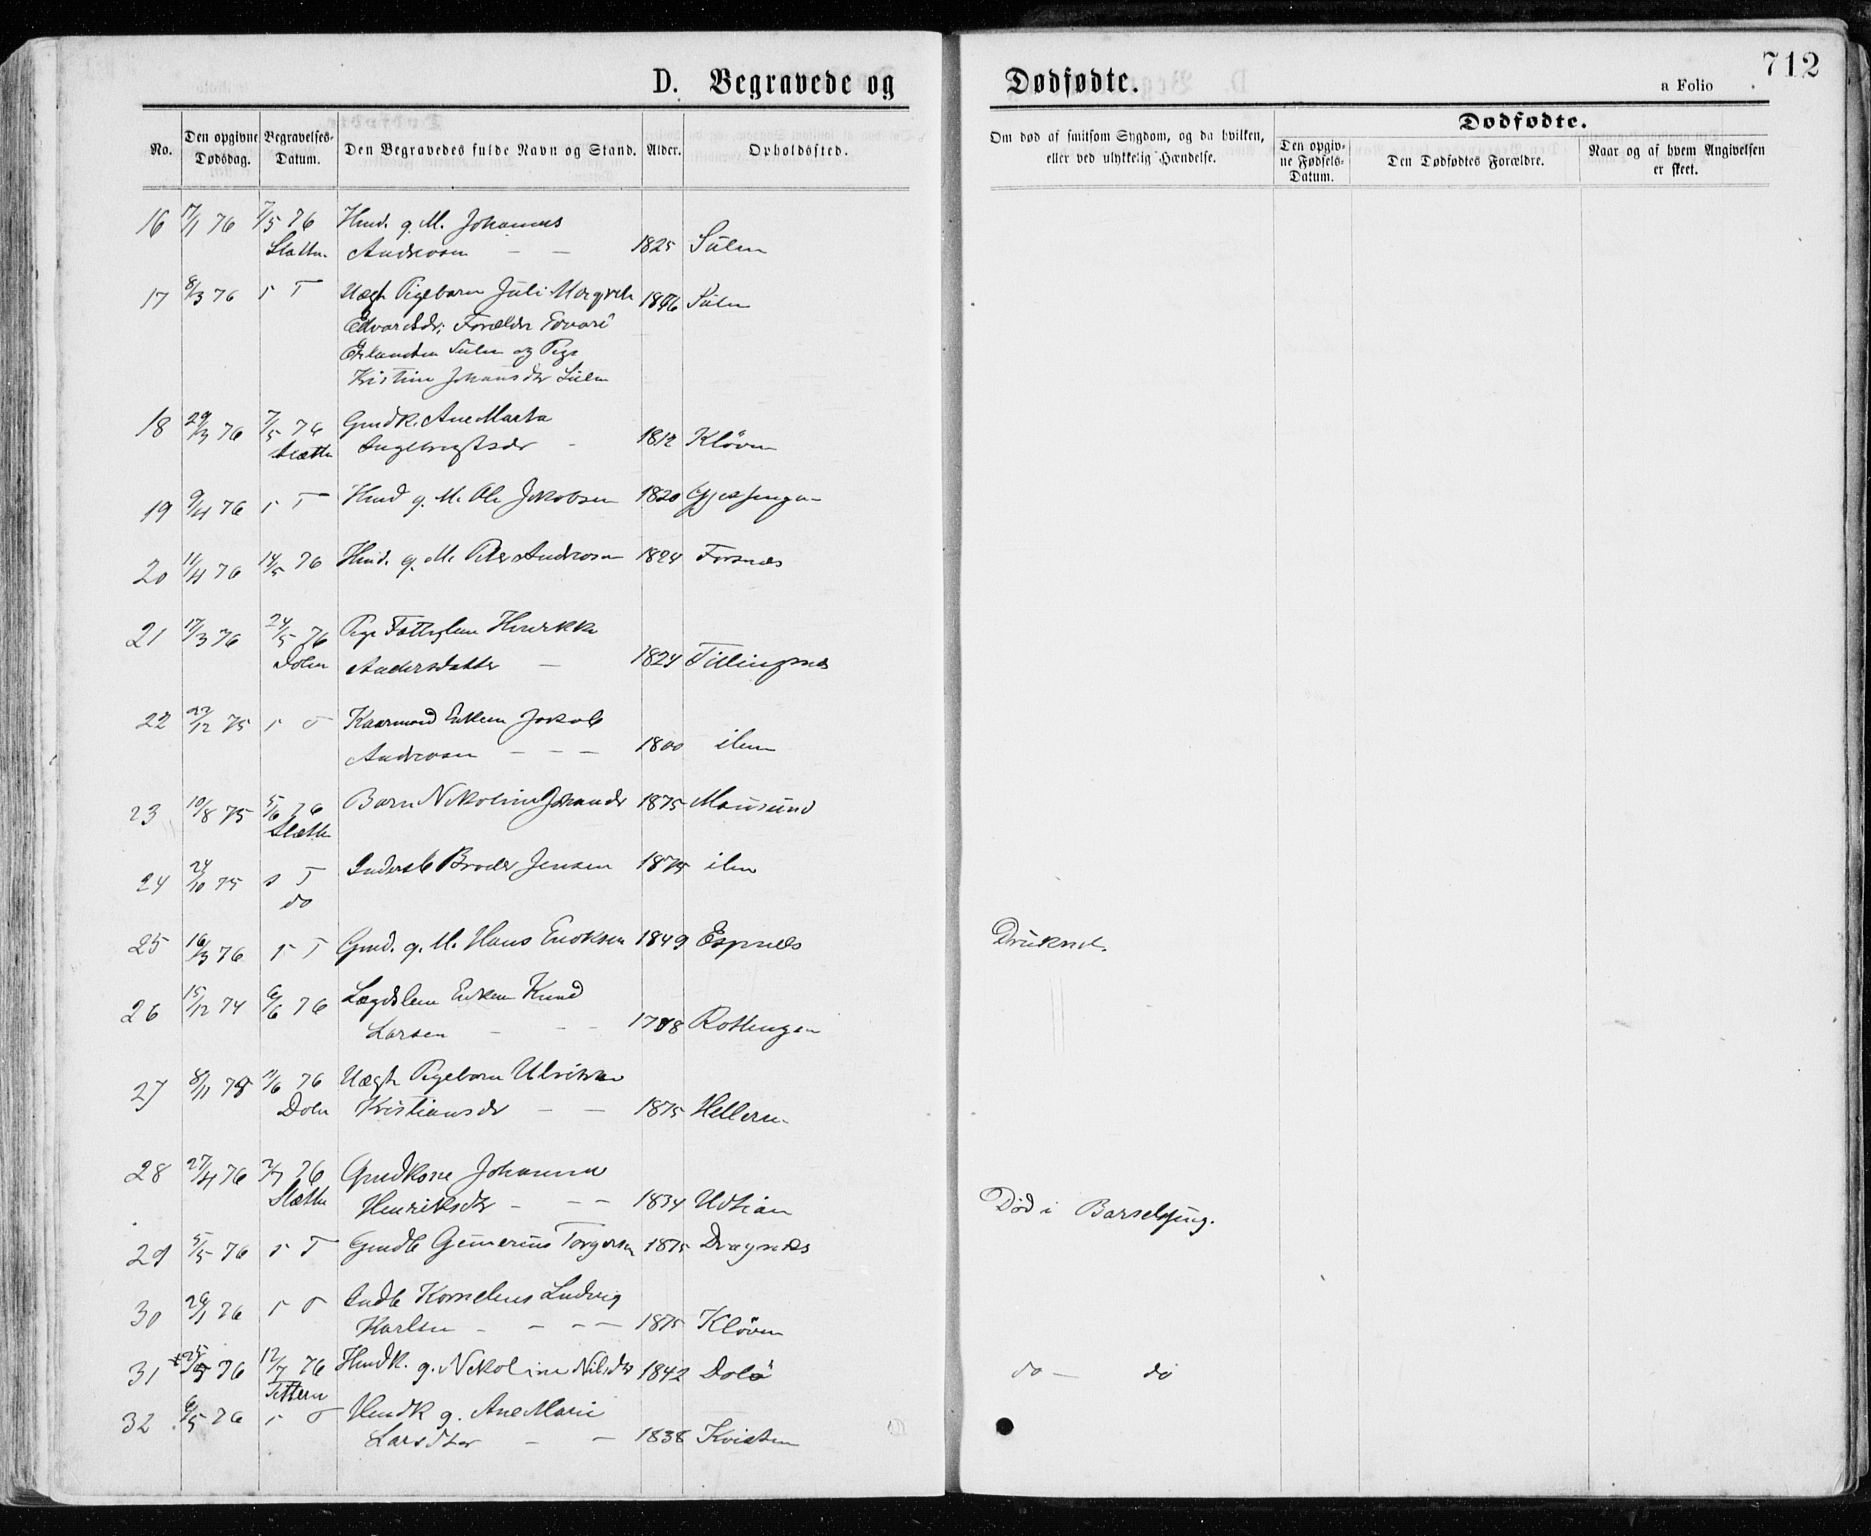 D. Begravede og
Dødfødte.
712
a Folio
No.
Den opgivne Dødsdag.
Begravelses-Datum.
Den Begravedes fulde Navn og Stand.
Alder.
Opholdssted.
Om død af smitsom Sygdom, og da hvilken, eller ved ulykkelig Hændelse.
Dødfødte.
Den opgivne Fødsels-Datum.
Den Dødfødtes Forældre.
Naar og af hvem Angivelsen er skeet.
16 17/1 76 7/5 76 Hmd. g. M. Johannes
Slettn. Andreasen — — 1825 Sulen
17 8/3 76 Uægte Pigebarn Juli Margrete 1876 Sulen
Edvardsdr; Forældre Edvard
Erlandsen Sulen og Pige
Kristine Johansdtr Sulen
18 29/3 76 7/5 76 Gmdk. Ane Marta
Slettn Ingebrigtsdr - 1812 Kløven
19 9/4 76 Hmd g. M. Ole Jakobsen 1820 Gjessingen
20 11/4 76 14/5 76 Hmd. g. M. Peter Andreasen 1824 Forsnæs
21 17/3 76 24/5 76 Pige Fattiglem Henrikke
Dolm Andersdatter — 1824 Titlingsnes
22 27/12 75 Kaarmand Enkem Jakob
Andreasen — — — 1800 ilen
23 10/8 75 5/6 76 Barn Nikoline Johansdr 1875 Mausund
Slettn
24 24/10 75 Inderst b Broder Jensen 1875 ilen
do
25 16/3 76 Gmd. g. M. Hans Enoksen 1849 Espnæs Druknet.
26 15/12 74 6/6 76 Lægdslem Enkem Knud
Larsen - - - 1788 Rottingen
27 8/11 75 11/6 76 Uægte Pigebarn Ulrikke
Dolm Kristiansdr — — 1875 Helleren
28 27/4 76 2/7 76 Gmdkone Johanna
Slettn Henriksdtr - — — 1834 Udtian Død i Barselseng.
29 5/5 76 Gmdb Gunerius Torgersen 1875 Dragsnæs
30 26/1 76 Indb Kornelius Ludvig
Karlsen - — — — 1875 Kløven
31 25/5 76 12/7 76 Hmdk. g. Nikoline Nilsdtr 1842 Dolø do — do
Tittern
32 6/5 76 Hmdk g. Ane Marie
Larsdtr — — 1838 Kvisten